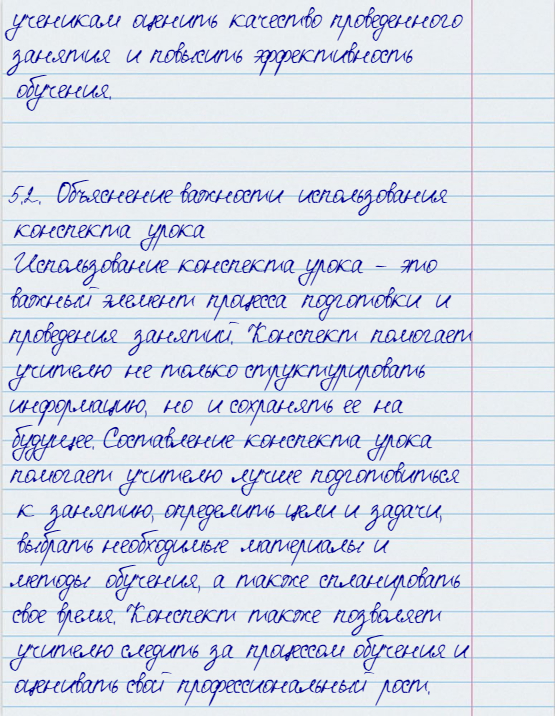 ученикам оценить качество проведенного
занятия и повысить эффективность
обучения.
5.2. Объяснение важности использования
конспекта урока
Использование конспекта урока – это
важный элемент процесса подготовки и
проведения занятий. Конспект помогает
учителю не только структурировать
информацию, но и сохранять ее на
будущее. Составление конспекта урока
помогает учителю лучше подготовиться
к занятию, определить цели и задачи,
выбрать необходимые материалы и
методы обучения, а также спланировать
свое время. Конспект также позволяет
учителю следить за процессом обучения и
оценивать свой профессиональный рост.